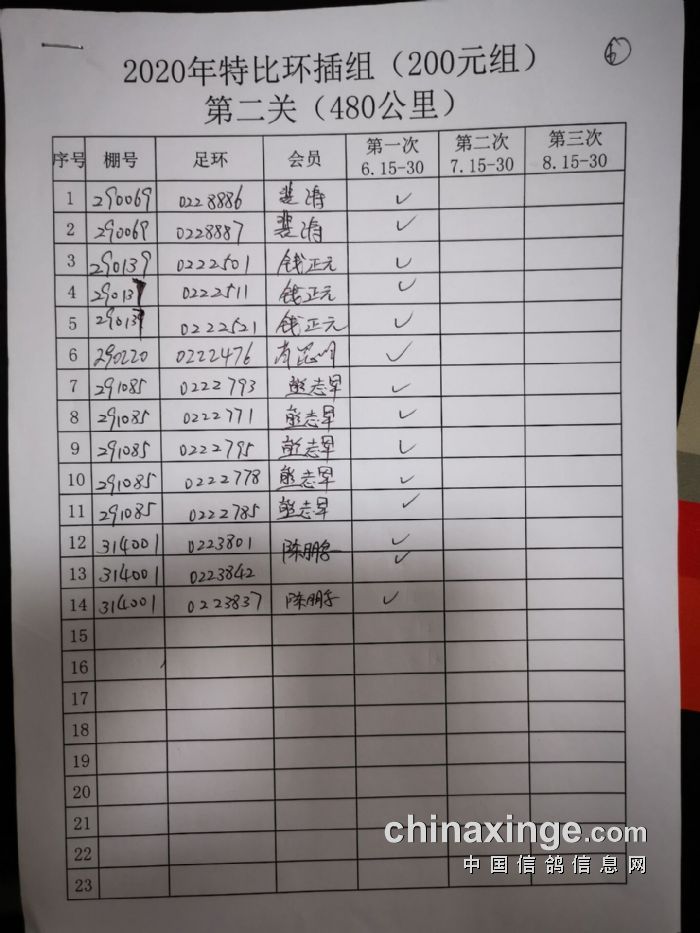 6
2020年特比环插组（200元组）
第二关（480公里）
序号 棚号 足环 会员 第一次 6.15-30 第二次 7.15-30 第三次 8.15-30
1 290069 0228886 裴涛 ✓
2 290069 0228887 裴涛 ✓
3 290139 0222501 钱正元 ✓
4 290139 0222511 钱正元 ✓
5 290139 0222521 钱正元 ✓
6 290220 0222476 肖昆明 ✓
7 291085 0222793 熊志早 ✓
8 291085 0222771 熊志早 ✓
9 291085 0222795 熊志早 ✓
10 291085 0222778 熊志早 ✓
11 291085 0222785 熊志早 ✓
12 314001 0223801 陈鹏 ✓
13 314001 0223842 ✓
14 314001 0223837 陈鹏 ✓
15
16
17
18
19
20
21
22
23
chinaxinge.com
中国信鸽信息网